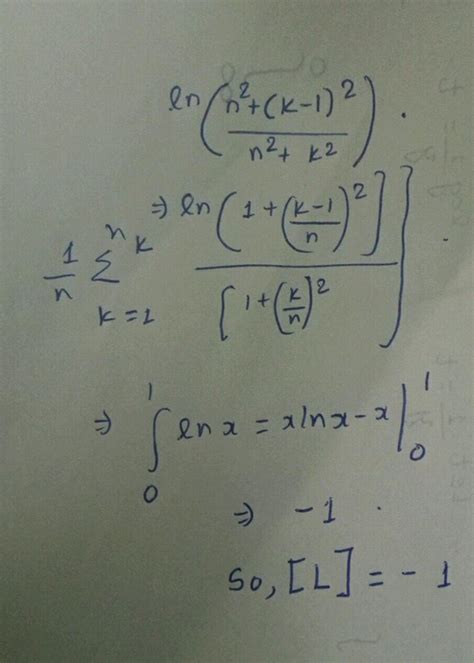 ln(n²+(k-1)²/n²+k²).
1/n Σ_{k=1}^{n} k ⇒ ln(1+((k-1)/n)²]/[1+(k/n)]²}.
⇒ ∫₀¹ ln x = x ln x - x |₀¹
⇒ -1.
So, [L] = -1